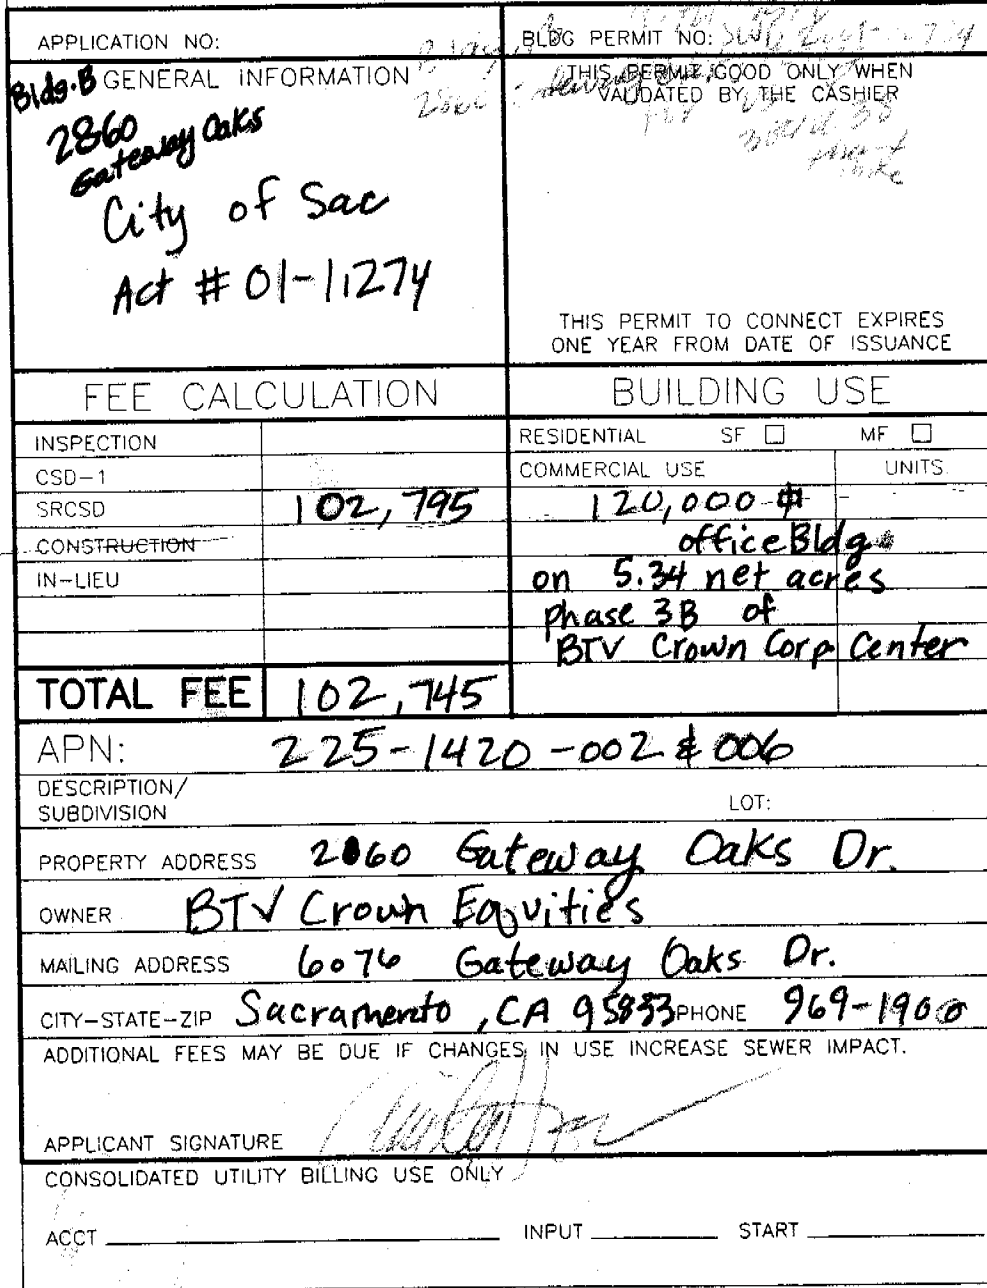 APPLICATION NO:
BLDG PERMIT NO:
Bldg. B GENERAL INFORMATION
2860
Gateway Oaks
City of Sac
Act # 01-11274
THIS PERMIT GOOD ONLY WHEN
VALIDATED BY THE CASHIER
THIS PERMIT TO CONNECT EXPIRES
ONE YEAR FROM DATE OF ISSUANCE
FEE CALCULATION
INSPECTION
CSD-1
SRCSD 102,795
CONSTRUCTION
IN-LIEU
TOTAL FEE 102,745
BUILDING USE
RESIDENTIAL SF MF
COMMERCIAL USE UNITS
120,000
office Bldg.
on 5.34 net acres
phase 3B of
BTV Crown Corp Center
APN: 225-1420-002 & 006
DESCRIPTION/
SUBDIVISION LOT:
PROPERTY ADDRESS 2860 Gateway Oaks Dr.
OWNER BTV Crown Equities
MAILING ADDRESS Gateway Oaks Dr.
CITY-STATE-ZIP Sacramento, CA 95833 PHONE 969-1900
ADDITIONAL FEES MAY BE DUE IF CHANGES IN USE INCREASE SEWER IMPACT.
APPLICANT SIGNATURE
CONSOLIDATED UTILITY BILLING USE ONLY
ACCT INPUT START